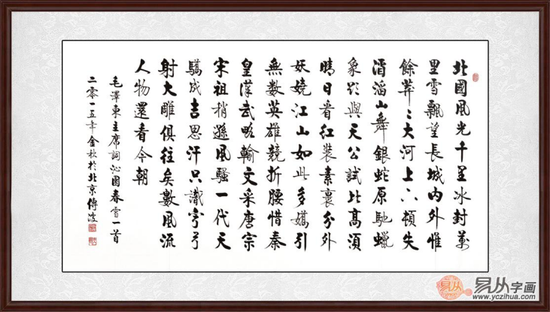 北國風光千里冰封萬
里雪飄望長城內外惟
餘莽々大河上下頓失
滔滔山舞銀蛇原馳蠟
象欲與天公試比高須
晴日看紅裝素裹分外
妖嬈江山如此多嬌引
無數英雄競折腰惜秦
皇漢武略輸文采唐宗
宋祖稍遜風騷一代天
驕成吉思汗只識彎弓
射大雕俱往矣數風流
人物還看今朝
毛澤東主席詞沁園春雪一首
二零一五年金秋於北京
易从字画
www.yczihua.com